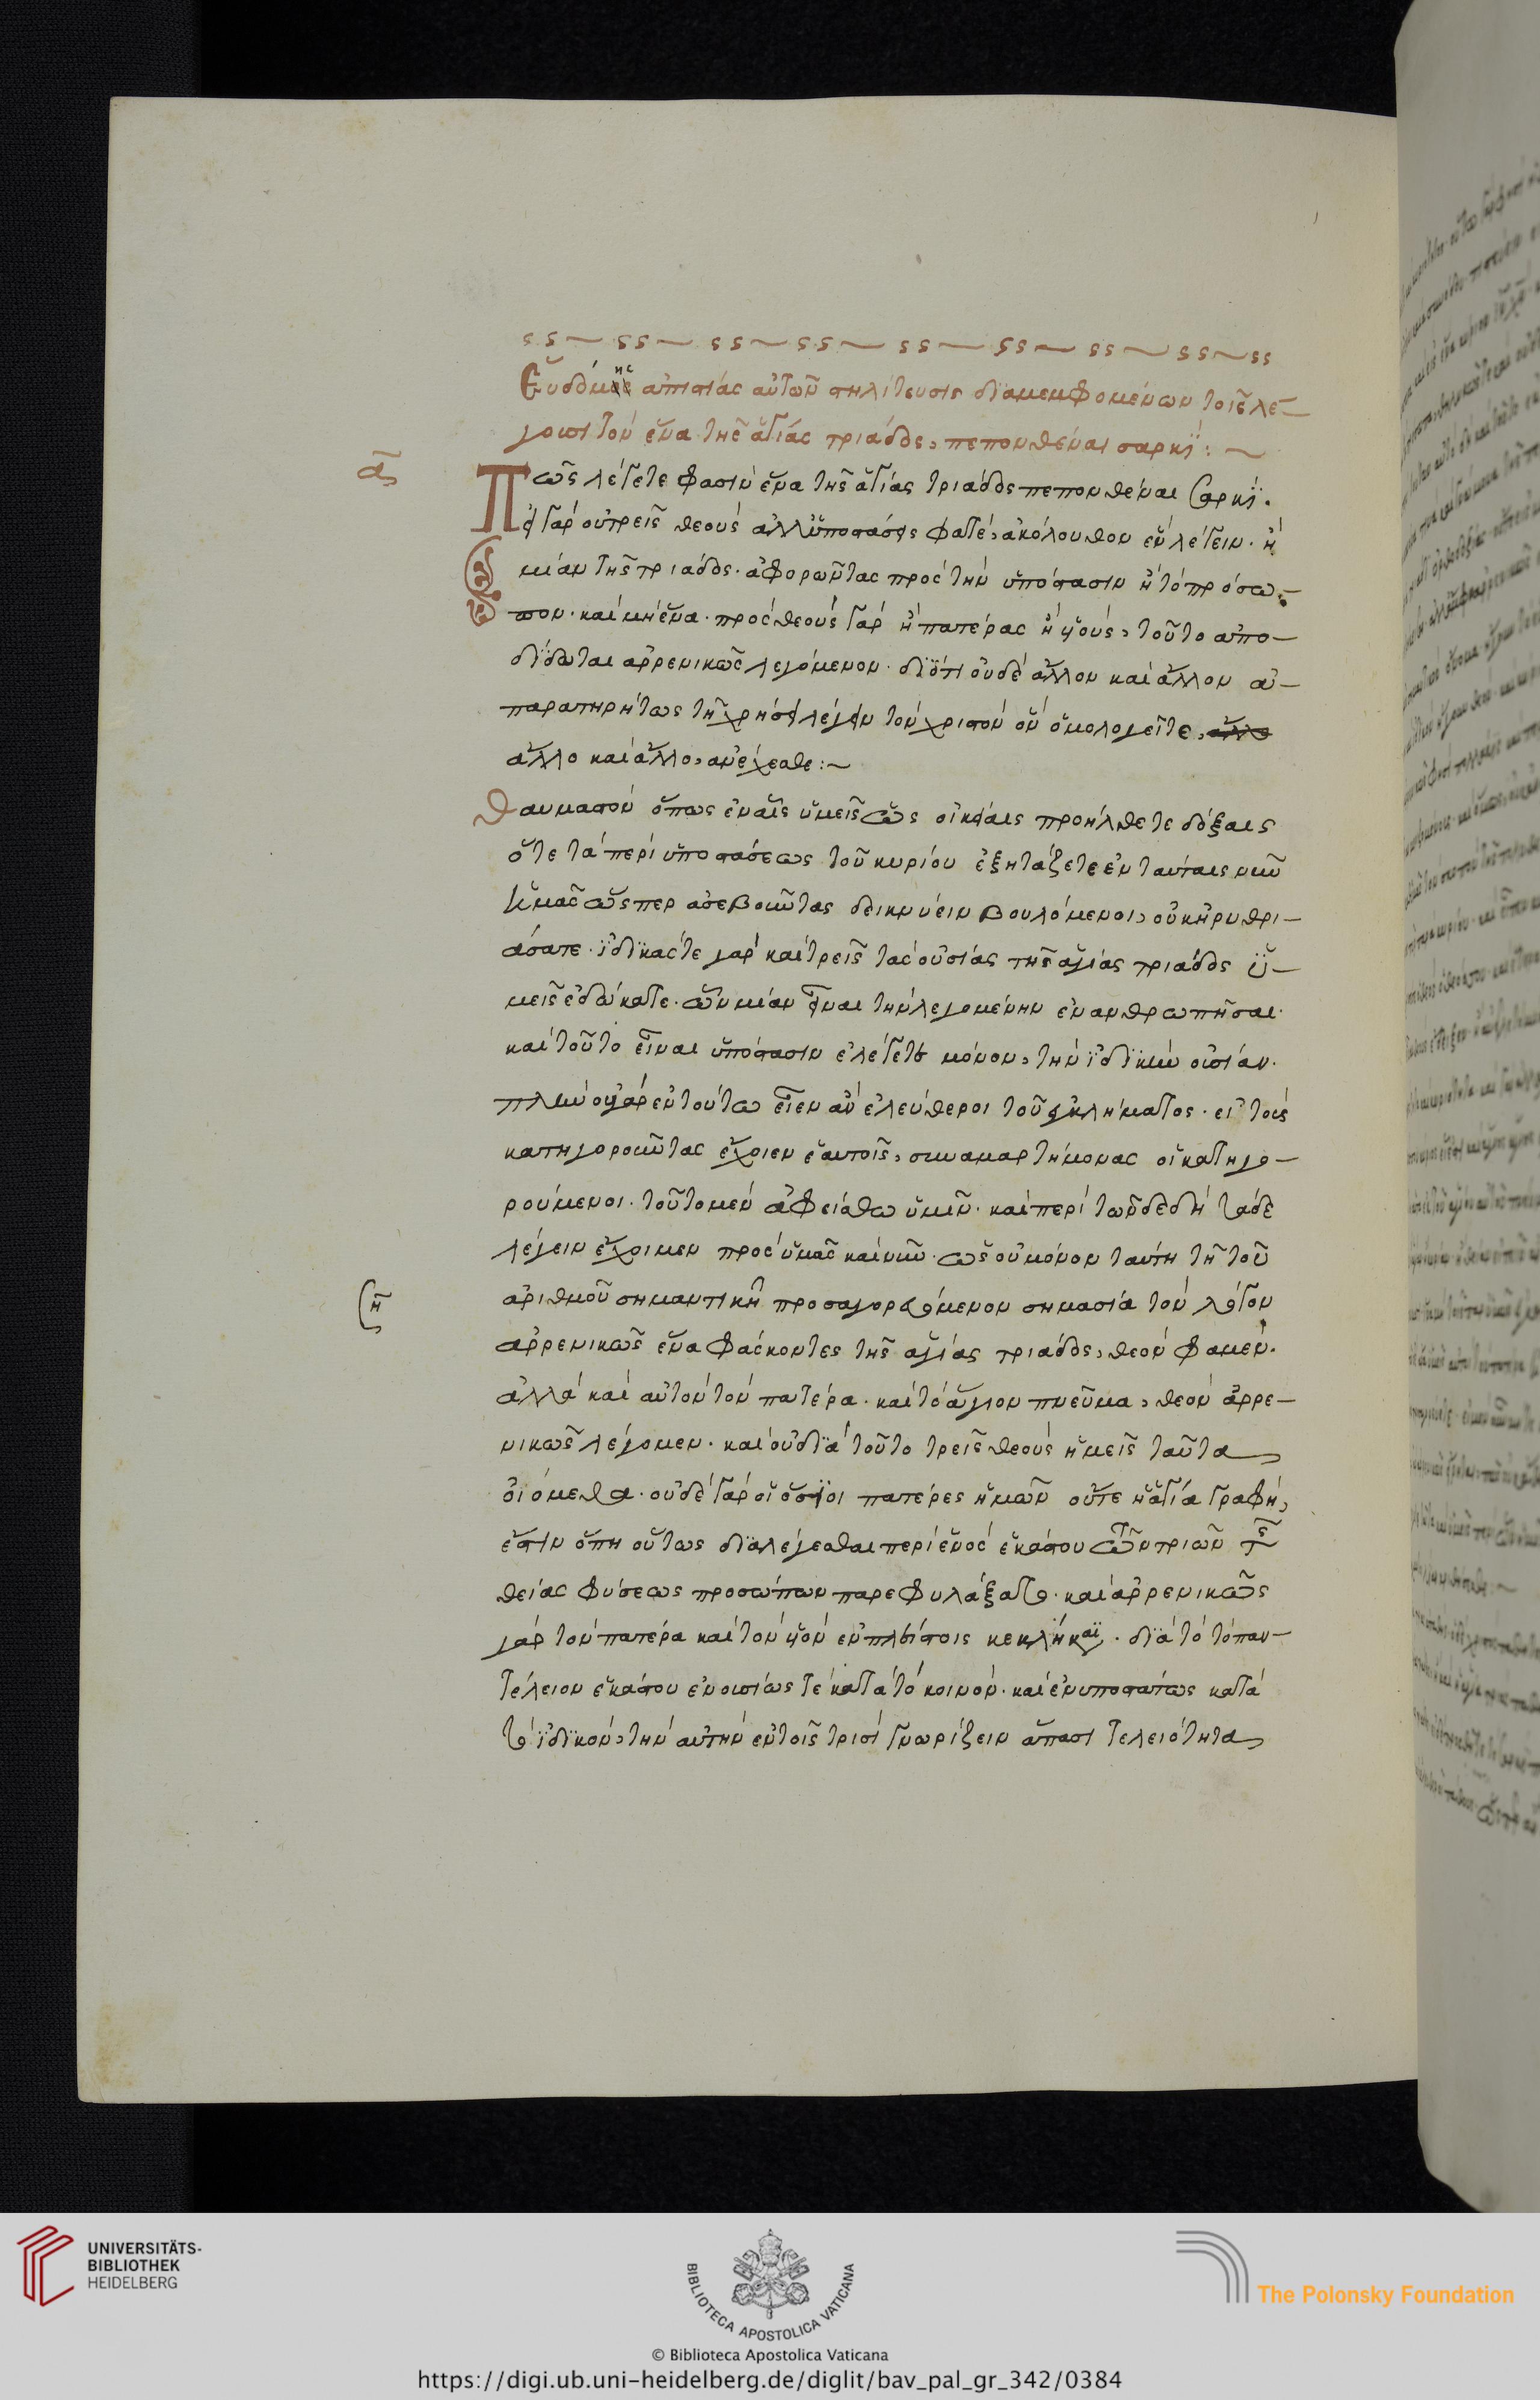 Ἑβδόμης ἀπιστίας αὐτῶν στηλίτευσις διαμεμφομένων τοῖς λέ-
γουσι τὸν ἕνα τῆς ἁγίας τριάδος, πεπονθέναι σαρκί: ~
α
Πῶς λέγετε φασὶν ἕνα τῆς ἁγίας τριάδος πεπονθέναι σαρκί.
εἰ γὰρ οὐ τρεῖς θεοὺς ἀλλ' ὑποστάσεις φατέ, ἀκόλουθον ἓν λέγειν. ἢ
μίαν τῆς τριάδος. ἀφορῶντας πρὸς τὴν ὑπόστασιν ἢ τὸ πρόσω-
πον. καὶ μὴ ἕνα. πρὸς θεοὺς γὰρ ἢ πατέρας ἢ υἱούς, τοῦτο ἀπο-
δίδοται ἀρρενικῶς λεγόμενον. διότι οὐδὲ ἄλλον καὶ ἄλλον ἀ-
παρατηρήτως τῇ χρήσει λέγειν τὸν χριστὸν ὃν ὁμολογεῖτε,
ἄλλο καὶ ἄλλο, ἀνέχεσθε: ~
θαυμαστὸν ὅπως ἐν αἷς ὑμεῖς ὡς οἰκείαις προήλθετε δόξαις
ὅτε τὰ περὶ ὑποστάσεως τοῦ κυρίου ἐξητάζετε ἐν ταύταις νῦν
ἡμᾶς ὥσπερ ἀσεβοῦντας δεικνύειν βουλόμενοι, οὐκ ἠρυθρι-
άσατε. ἰδικάς τε γὰρ καὶ τρεῖς τὰς οὐσίας τῆς ἁγίας τριάδος ὑ-
μεῖς ἐδώκατε. ὧν μίαν εἶναι τὴν λεγομένην ἐνανθρωπῆσαι.
καὶ τοῦτο εἶναι ὑπόστασιν ἐλέγετε μόνον, τὴν ἰδικὴν οὐσίαν.
πλὴν οὐ γὰρ ἐν τούτω εἶεν ἂν ἐλεύθεροι τοῦ ἐγκλήματος. εἰ τοὺς
κατηγοροῦντας ἔχοιεν ἑαυτοῖς, συναμαρτήμονας οἱ κατηγο-
ρούμενοι. τοῦτο μὲν ἀφείσθω ὑμῖν. καὶ περὶ τῶνδε δὴ τάδε
λέγειν ἔχοιμεν πρὸς ὑμᾶς καὶ νῦν. ὡς οὐ μόνον ταύτη τῆ τοῦ
η
ἀριθμοῦ σημαντικῇ προσαγορευόμενον σημασία τὸν λόγον
ἀρρενικῶς ἕνα φάσκοντες τῆς ἁγίας τριάδος, θεόν φαμεν.
ἀλλὰ καὶ αὐτὸν τὸν πατέρα. καὶ τὸ ἅγιον πνεῦμα, θεὸν ἀρρε-
νικῶς λέγομεν. καὶ οὐ διὰ τοῦτο τρεῖς θεοὺς ἡμεῖς ταῦτα
οἰόμεθα. οὐδὲ γὰρ οἱ ὅσιοι πατέρες ἡμῶν οὔτε ἡ ἁγία γραφή,
ἔστιν ὅπη οὕτως διαλέγεσθαι περὶ ἑνὸς ἑκάστου τῶν τριῶν τῆς
θείας φύσεως προσώπων παρεφυλάξατο. καὶ ἀρρενικῶς
γὰρ τὸν πατέρα καὶ τὸν υἱὸν ἐν πλείστοις κεκλήκασι. διὰ τὸ τὸ παν-
τέλειον ἑκάστου ἐνουσίως τε κατὰ τὸ κοινὸν. καὶ ἐνυποστάτως κατὰ
τὸ ἰδικόν, τὴν αὐτὴν ἐν τοῖς τρισὶ γνωρίζειν ἅπασι τελειότητα
UNIVERSITÄTS-
BIBLIOTHEK
HEIDELBERG
BIBLIOTECA APOSTOLICA VATICANA
The Polonsky Foundation
© Biblioteca Apostolica Vaticana
https://digi.ub.uni-heidelberg.de/diglit/bav_pal_gr_342/0384